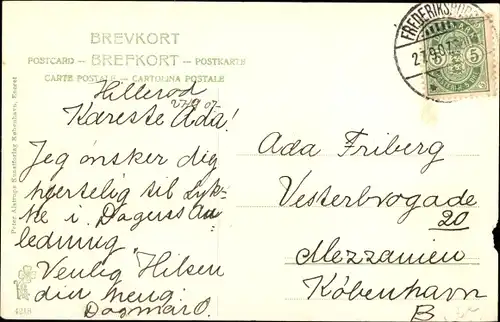 BREVKORT
POSTCARD — BREFKORT — POSTKARTE
CARTE POSTALE — CARTOLINA POSTALE
Hillerod
27/9 07
Kæreste Ada!
Jeg ønsker dig
hjertelig til Lyk-
ke i Dagens An
ledning
Venlig Hilsen
din heng:
Dagmar O.
Ada Friberg
Vesterbrogade
20
Mezzanien
København
B.
FREDERIKSBORG
27.9.07
5
Peter Alstrups Kunstforlag København, Eneret
4218